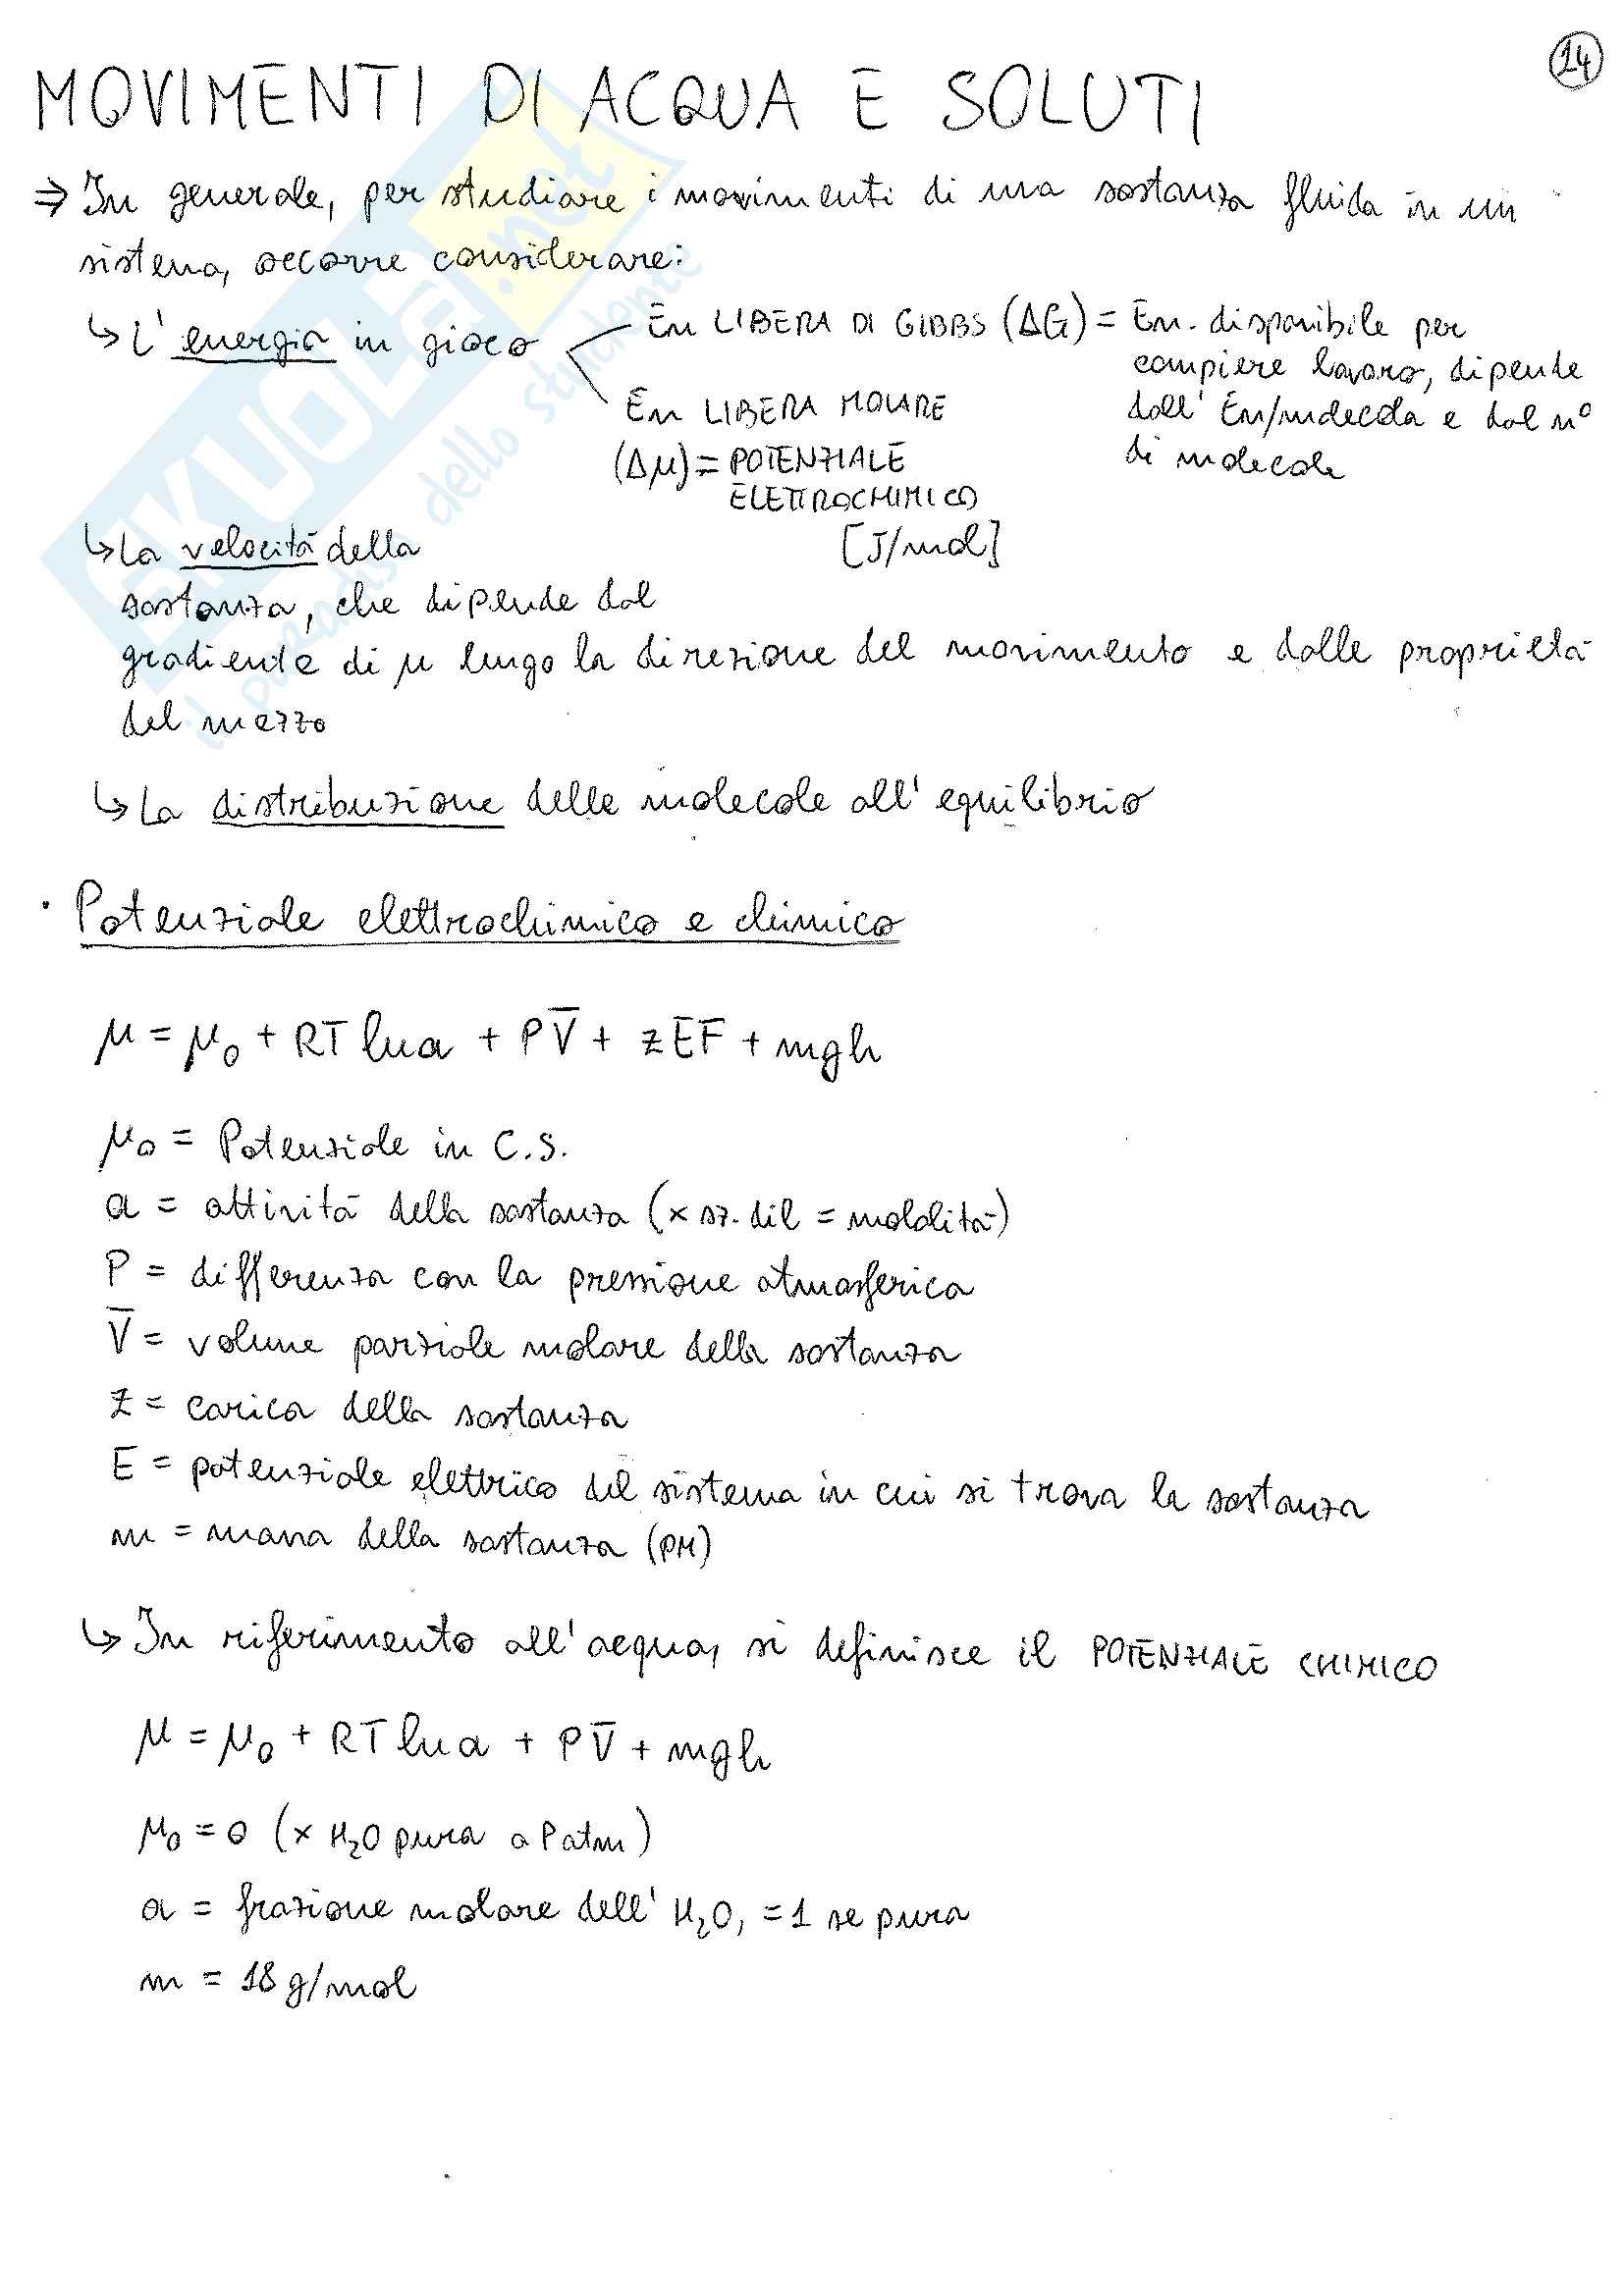 14
MOVIMENTI DI ACQUA E SOLUTI
⇒ In generale, per studiare i movimenti di una sostanza fluida in un
sistema, occorre considerare:
↳ L'energia in gioco
En LIBERA DI GIBBS (ΔG) = En. disponibile per
compiere lavoro, dipende
dall' En/molecola e dal n°
di molecole
En LIBERA MOLARE
(Δμ) = POTENZIALE
ELETTROCHIMICO
[J/mol]
↳ La velocità della
sostanza, che dipende dal
gradiente di μ lungo la direzione del movimento e dalle proprietà
del mezzo
↳ La distribuzione delle molecole all'equilibrio
· Potenziale elettrochimico e chimico
μ = μ₀ + RT ln a + PV̅ + zEF + mgh
μ₀ = Potenziale in C.S.
a = attività della sostanza (x sz. dil = molalità)
P = differenza con la pressione atmosferica
V̅ = volume parziale molare della sostanza
z = carica della sostanza
E = potenziale elettrico del sistema in cui si trova la sostanza
m = massa della sostanza (PM)
↳ In riferimento all'acqua, si definisce il POTENZIALE CHIMICO
μ = μ₀ + RT ln a + PV̅ + mgh
μ₀ = 0 (x H₂O pura a Patm)
a = frazione molare dell' H₂O, = 1 se pura
m = 18 g/mol
SKUOLA.net
il paradiso dello studente